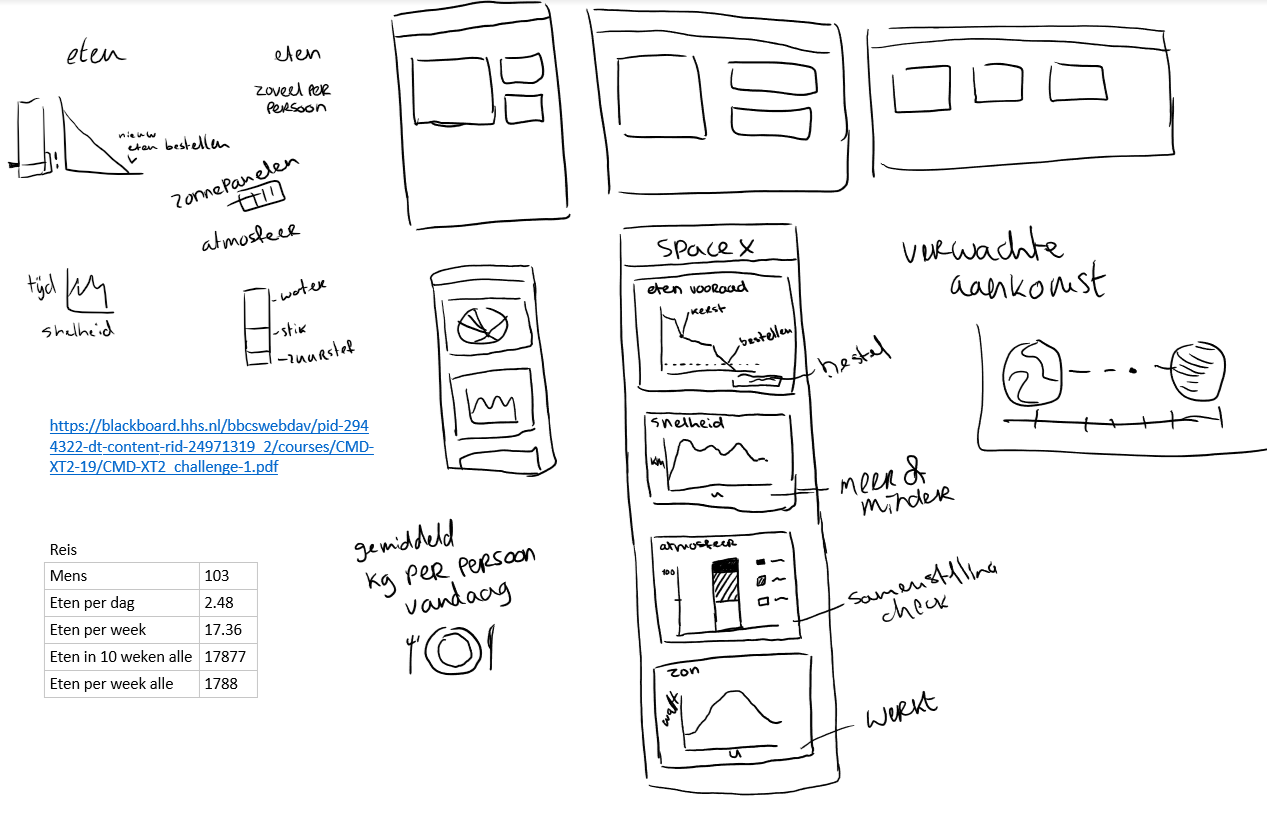 eten
nieuw
eten bestellen
eten
zoveel per
persoon
zonnepanelen
atmosfeer
tijd
snelheid
water
stik
zuurstof
https://blackboard.hhs.nl/bbcswebdav/pid-294
4322-dt-content-rid-24971319_2/courses/CMD-
XT2-19/CMD-XT2_challenge-1.pdf
Reis
Mens 103
Eten per dag 2.48
Eten per week 17.36
Eten in 10 weken alle 17877
Eten per week alle 1788
gemiddeld
kg per persoon
vandaag
Space X
eten vooraad
kerst
bestellen
bestel
snelheid
KM
u
meer &
minder
atmosfeer
100
samenstelling
check
zon
watt
u
werkt
verwachte
aankomst